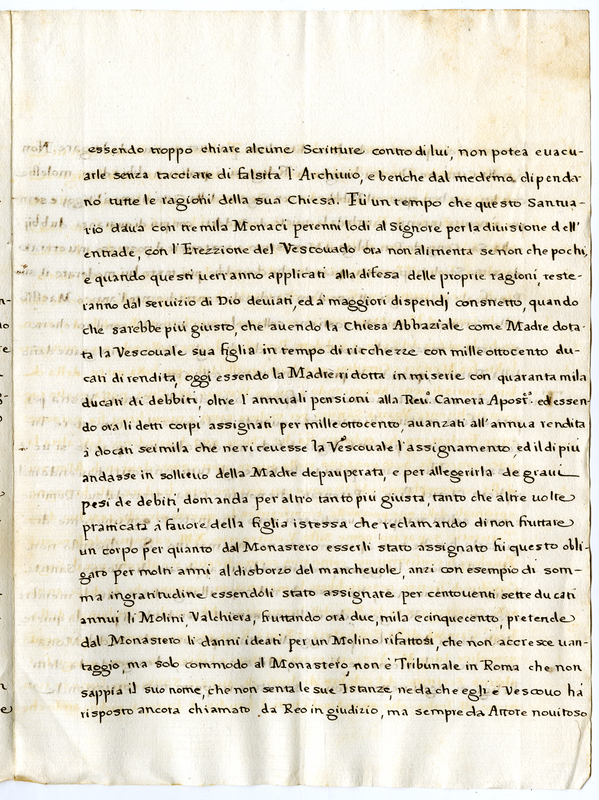 essendo troppo chiare alcune Scritture contro di lui, non potea euacu-
arle senza tacciare di falsità l'Archiuio, e benche dal medemo dipenda-
no tutte le ragioni della sua Chiesa. Fù un tempo che questo Santua-
rio daua con tre mila Monaci perenni lodi al Signore per la diuisione dell'
entrade, con l'Erezzione del Vescouado ora non alimenta se non che pochi,
e quando questi uerranno applicati alla difesa delle proprie ragioni, reste-
ranno dal seruizio di Dio deuiati, ed à maggiori dispendj constretto, quando
che sarebbe più giusto, che auendo la Chiesa Abbaziale come Madre dota-
ta la Vescouale sua figlia in tempo di ricchezze con mille ottocento du-
cati di rendita, oggi essendo la Madre ridotta in miserie con quaranta mila
ducati di debbiti, oltre l'annuali pensioni alla Reu. Camera Apost. ed essen-
do ora li detti corpi assignati per mille ottocento, auanzati all'annua rendita
à docati seimila che ne riceuesse la Vescouale l'assignamento, ed il di più
andasse in sollieuo della Madre depauperata, e per allegerirla de graui
pesi de debiti, domanda per altro tanto più giusta, tanto che altre uolte
pratticata à fauore della figlia istessa che reclamando di non fruttare
un corpo per quanto dal Monastero esserli stato assignato fù questo obli-
gato per molti anni al disborzo del mancheuole, anzi con esempio di som-
ma ingratitudine essendoli stato assignate per centouenti sette ducati
annui li Molini, Valchiera, fruttando ora due mila e cinquecento, pretende
dal Monastero li danni ideati per un Molino rifattosi, che non accresce uan-
taggio, ma solo commodo al Monastero, non è Tribunale in Roma che non
sappia il suo nome, che non senta le sue Istanze, ne da che egli è Vescouo hà
risposto ancora chiamato da Reo in giudizio, ma sempre da Attore nouitoso